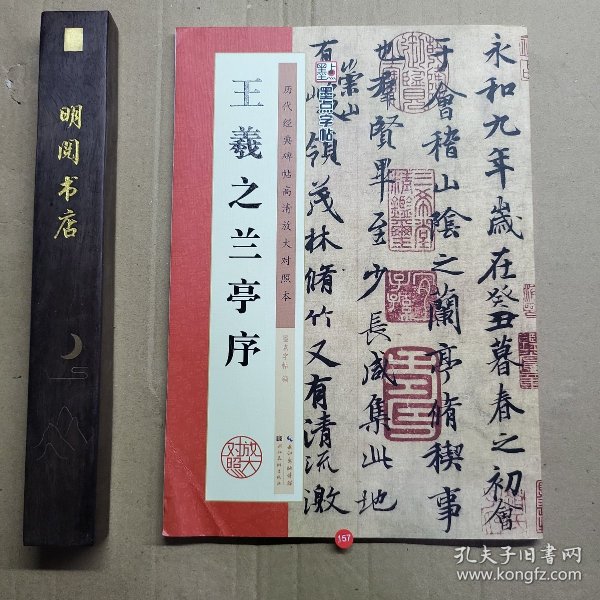 明阅书店
王羲之兰亭序
历代经典碑帖高清放大对照本
墨点字帖 编
放大
对照
长江出版传媒
湖北美术出版社
墨点
墨点字帖
永和九年歲在癸丑暮春之初會
于會稽山陰之蘭亭脩稧事
也群賢畢至少長咸集此地
有崇山
領茂林脩竹又有清流激
157
孔夫子旧书网
www.kongfz.com